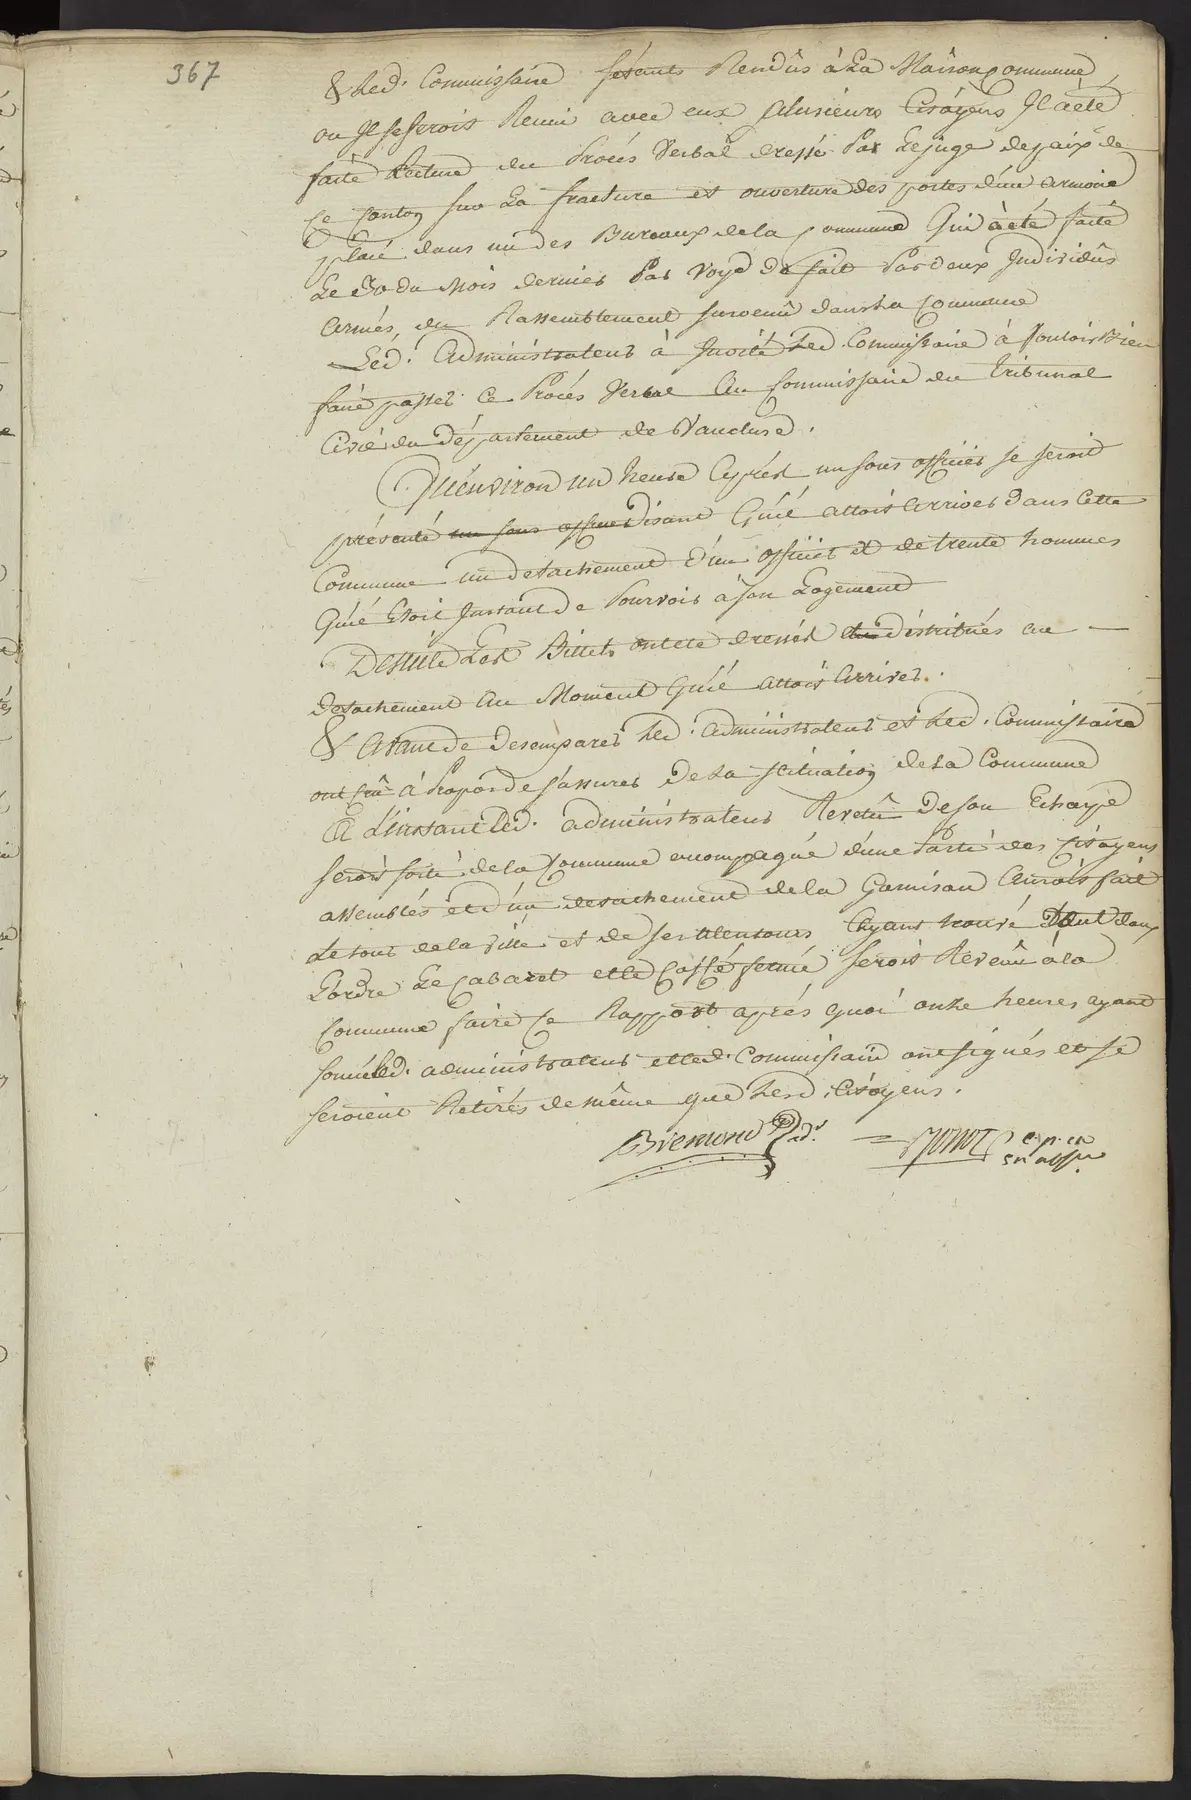 367
& led. Commissaire setants Rendûs à La Maison commune
ou Il se serois Reuni avec eux plusieurs Citoÿens Il a été
faite Lecture du Procés Verbal dressé Par Le juge de paix de
ce canton sur La fracture et ouverture des portes d'une armoire
placé dans un des Bureaux de la commune Qui à été faite
Le 30 du Mois dernier Par Voye de fait Par deux Individûs
armés, du Rassemblement survenû dans La commune
Led. Administrateur à Invité Led. Commissaire à Vouloir Bien
faire passer Ce Procés Verbal Au Commissaire du Tribunal
Civil du Département de Vaucluse.
Qu'environ un heure Après un sous officier se seroit
présenté un sous officier disant Qu'il allois Arriver Dans Cette
Commune un detachement d'un officier et de trente hommes
Qu'il Etoit Instant de Pourvoir a son Logement
De suite Les Billets ont eté dressés et distribués au —
detachement Au Moment Qu'il allois Arriver.
& Avant de desemparer Led. administrateur et Led. Commissaire
ont crû à Propos de s'assurer De La scituation de La Commune
A L'instant Led. administrateur Revetû De son Echarpe
serois sorti de la Commune accompagné d'une Partie des citoyens
assemblés et d'un detachement de la Garnison Aurois fait
Le tour de la Ville et de ses alentours Ayant trouvé Tout dans
L'ordre Le Cabaret et le Caffé fermé serois Revenû à la
Commune faire Ce Rapport aprés quoi onze heures ayant
sonné Led. administrateur et led. Commissaire ont signés et se
seroient Retirés de même que Lesd. Citoyens.
Bremond ad.